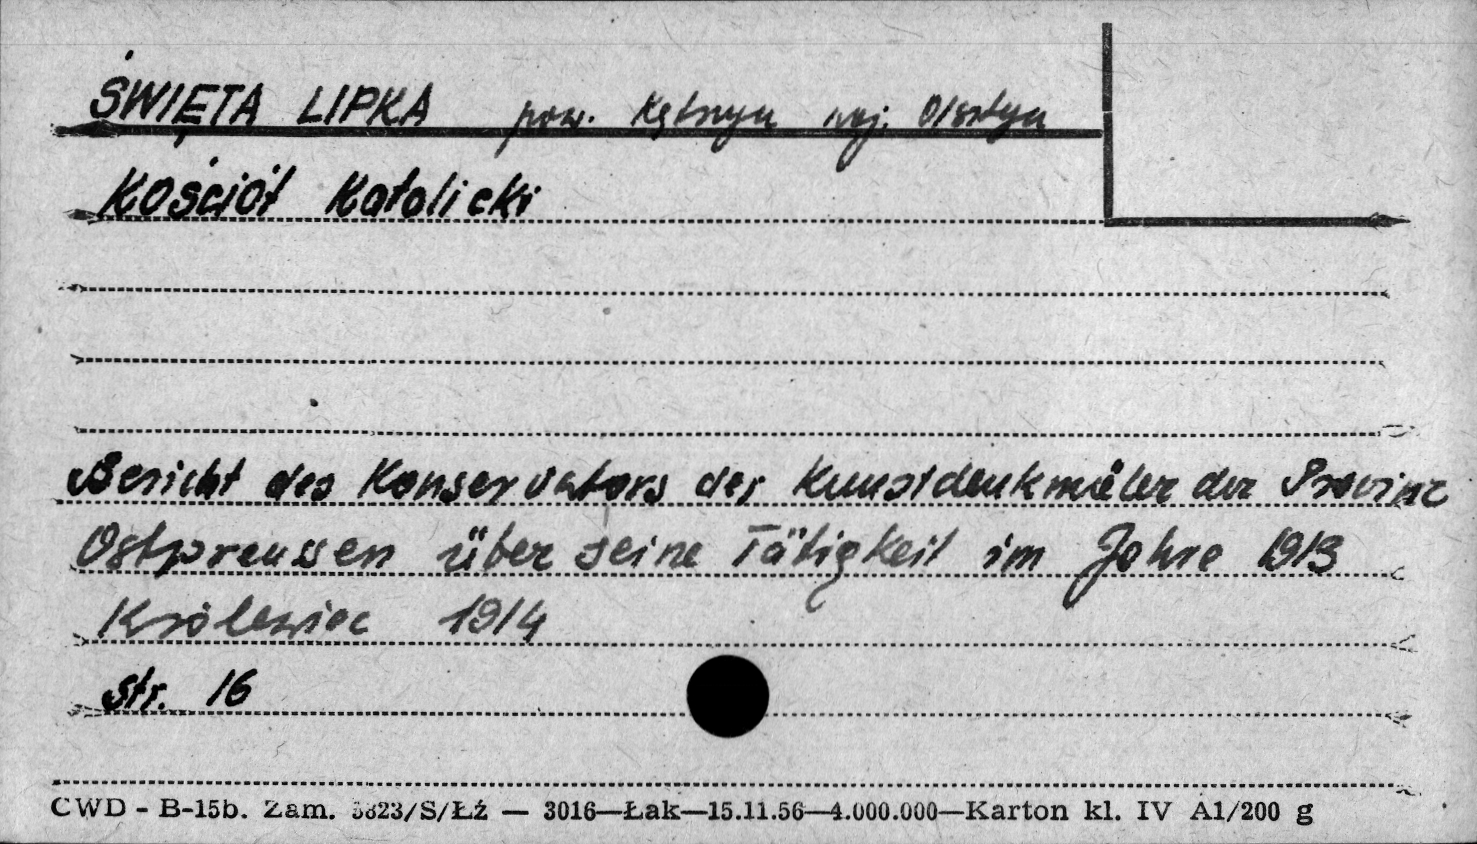 ŚWIĘTA LIPKA pow. Kętrzyn woj. Olsztyn
Kościół Katolicki
Bericht des Konservators der Kunstdenkmäler der Provinz
Ostpreussen über seine Tätigkeit im Jahre 1913
Królewiec 1914
str. 16
CWD - B-15b. Zam. 3823/S/Łź — 3016—Łak—15.11.56—4.000.000—Karton kl. IV A1/200 g